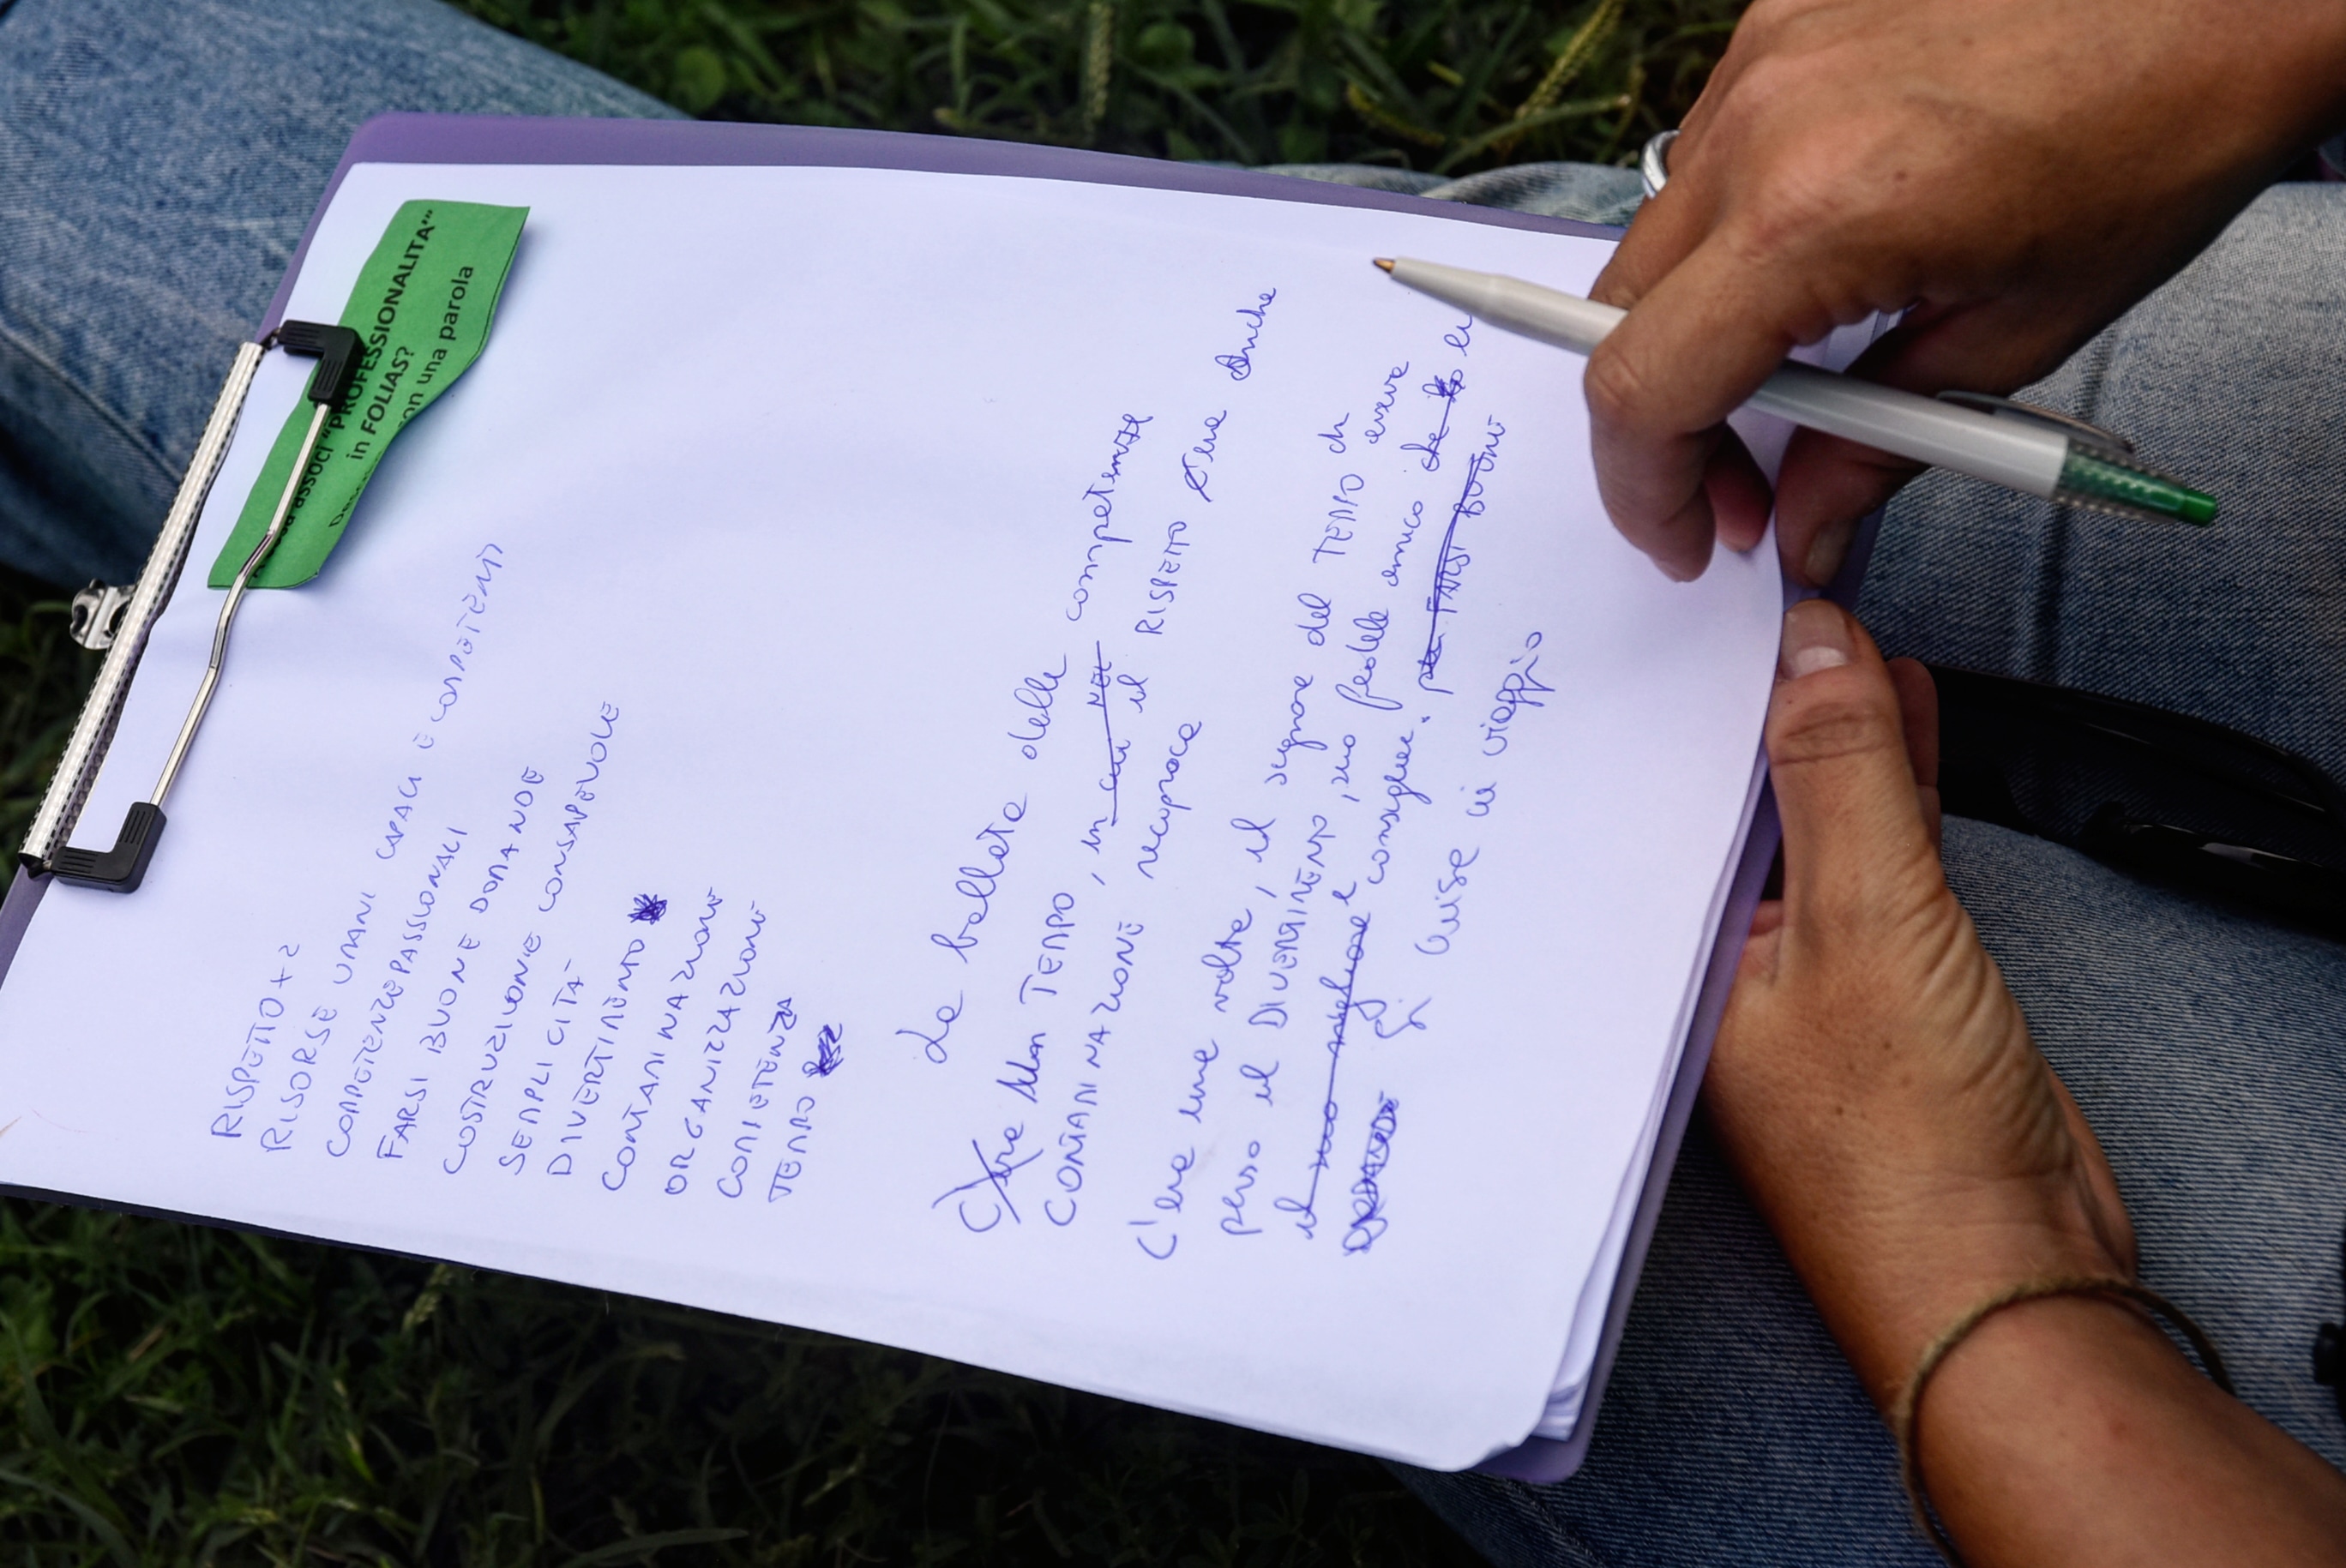 associ "PROFESSIONALITA"
in FOLIAS?
con una parola
RISPETTO + 2
RISORSE UMANI CAPACI E COMPETENTI
COMPETENZE PASSIONALI
FARSI BUONE DOMANDE
COSTRUZIONE CONSAPEVOLE
SEMPLICITA'
DIVERTIMENTO
CONTAMINAZIONI
ORGANIZZAZIONI
COMPETENZA
TEMPO
La ballata delle competenze
C'era Un TEMPO, in cui il RISPETTO c'era anche
CONTAMINAZIONE reciproca
C'era una volta, il signore del TEMPO che
perso il DIVERTIMENTO, suo fedele amico aveva
il suo migliore e consigliere. per FARSI BUONE
Si mise in viaggio